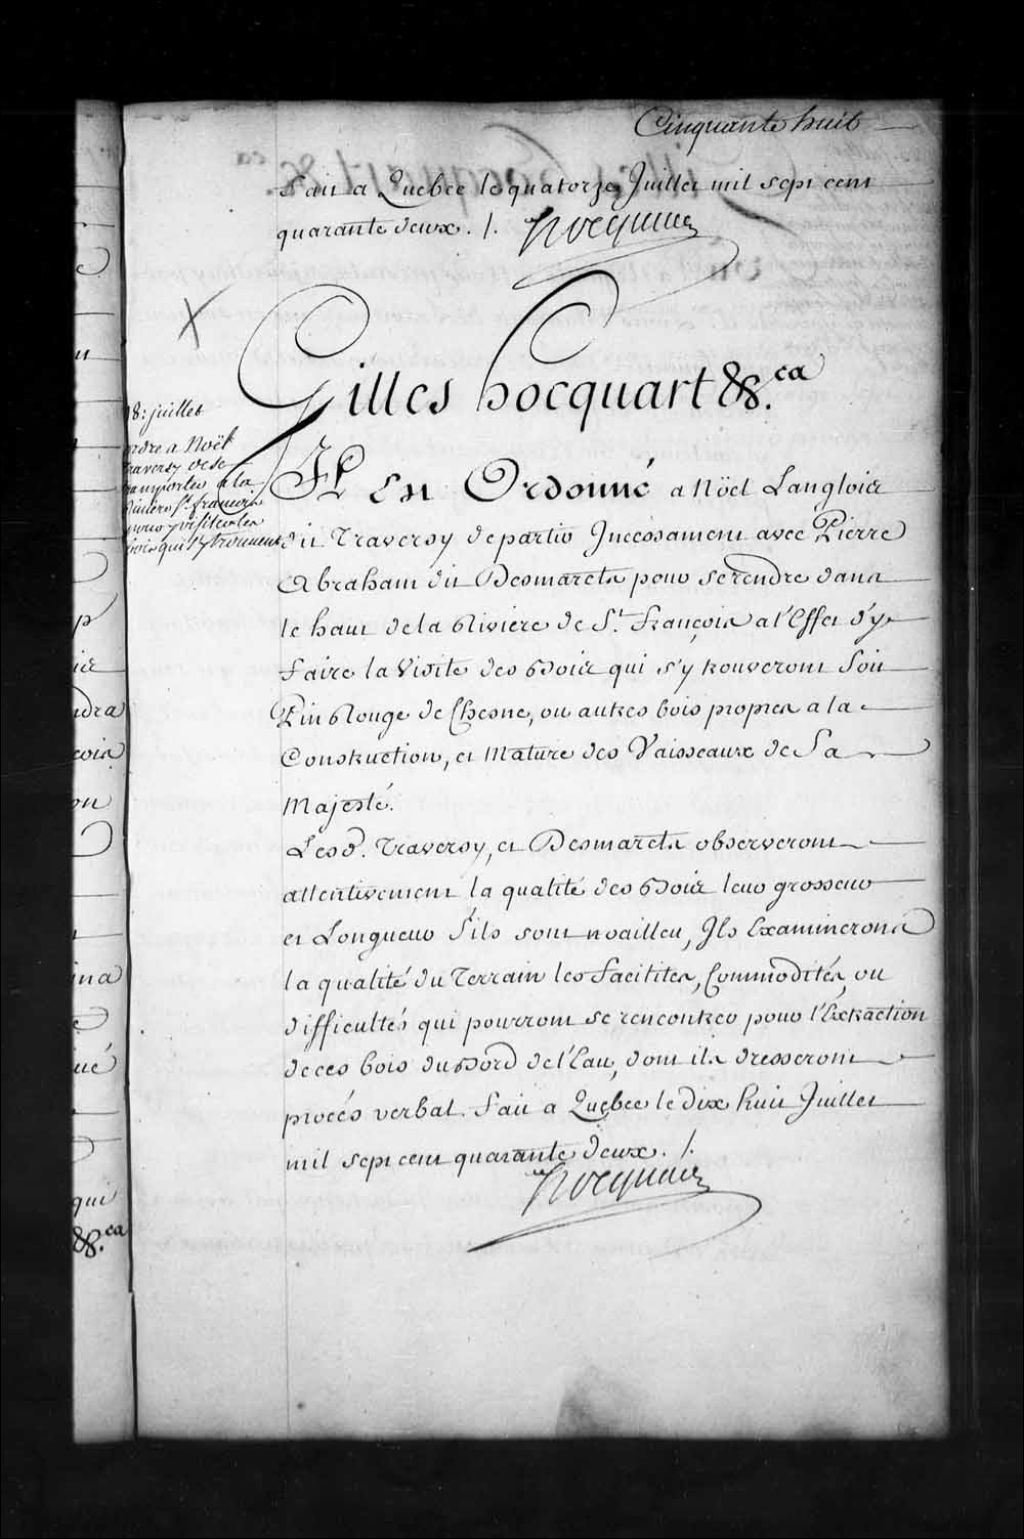 Cinquante huit
Fait a Quebec le quatorze Juillet mil sept cent
quarante deux. /. Hocquart
Gilles hocquart &c.ca
18: juillet
ordre a Noël
traversy de se
transporter a la
Riviere St. francois
pour y visiter les
bois qui s'y trouvent
Il Est Ordonné a Nöel Langlois
dit Traversy de partir Jncessament avec Pierre
Abraham dit Desmarets pour se rendre dans
le haut de la Riviere de St. François a l'Effet d'y
faire la Visite des Bois qui s'y trouveront soit
Pin Rouge de Chesne, ou autres bois propres a la
Construction, et Mature des Vaisseaux de Sa
Majesté.
Lesd. Traversy, et Desmarets observeront
attentivement la qualité des Bois leur grosseur
et Longueur s'ils sont noailleu, Jls Examinerons
la qualité du Terrain les facilites, Commodités, ou
difficultés qui pourront se rencontrer pour l'Extraction
de ces bois du Bord de l'Eau, dont ils dresseront
procés verbal. fait a Quebec le dix huit Juillet
mil sept cent quarante deux. /.
Hocquart
qui
&.ca